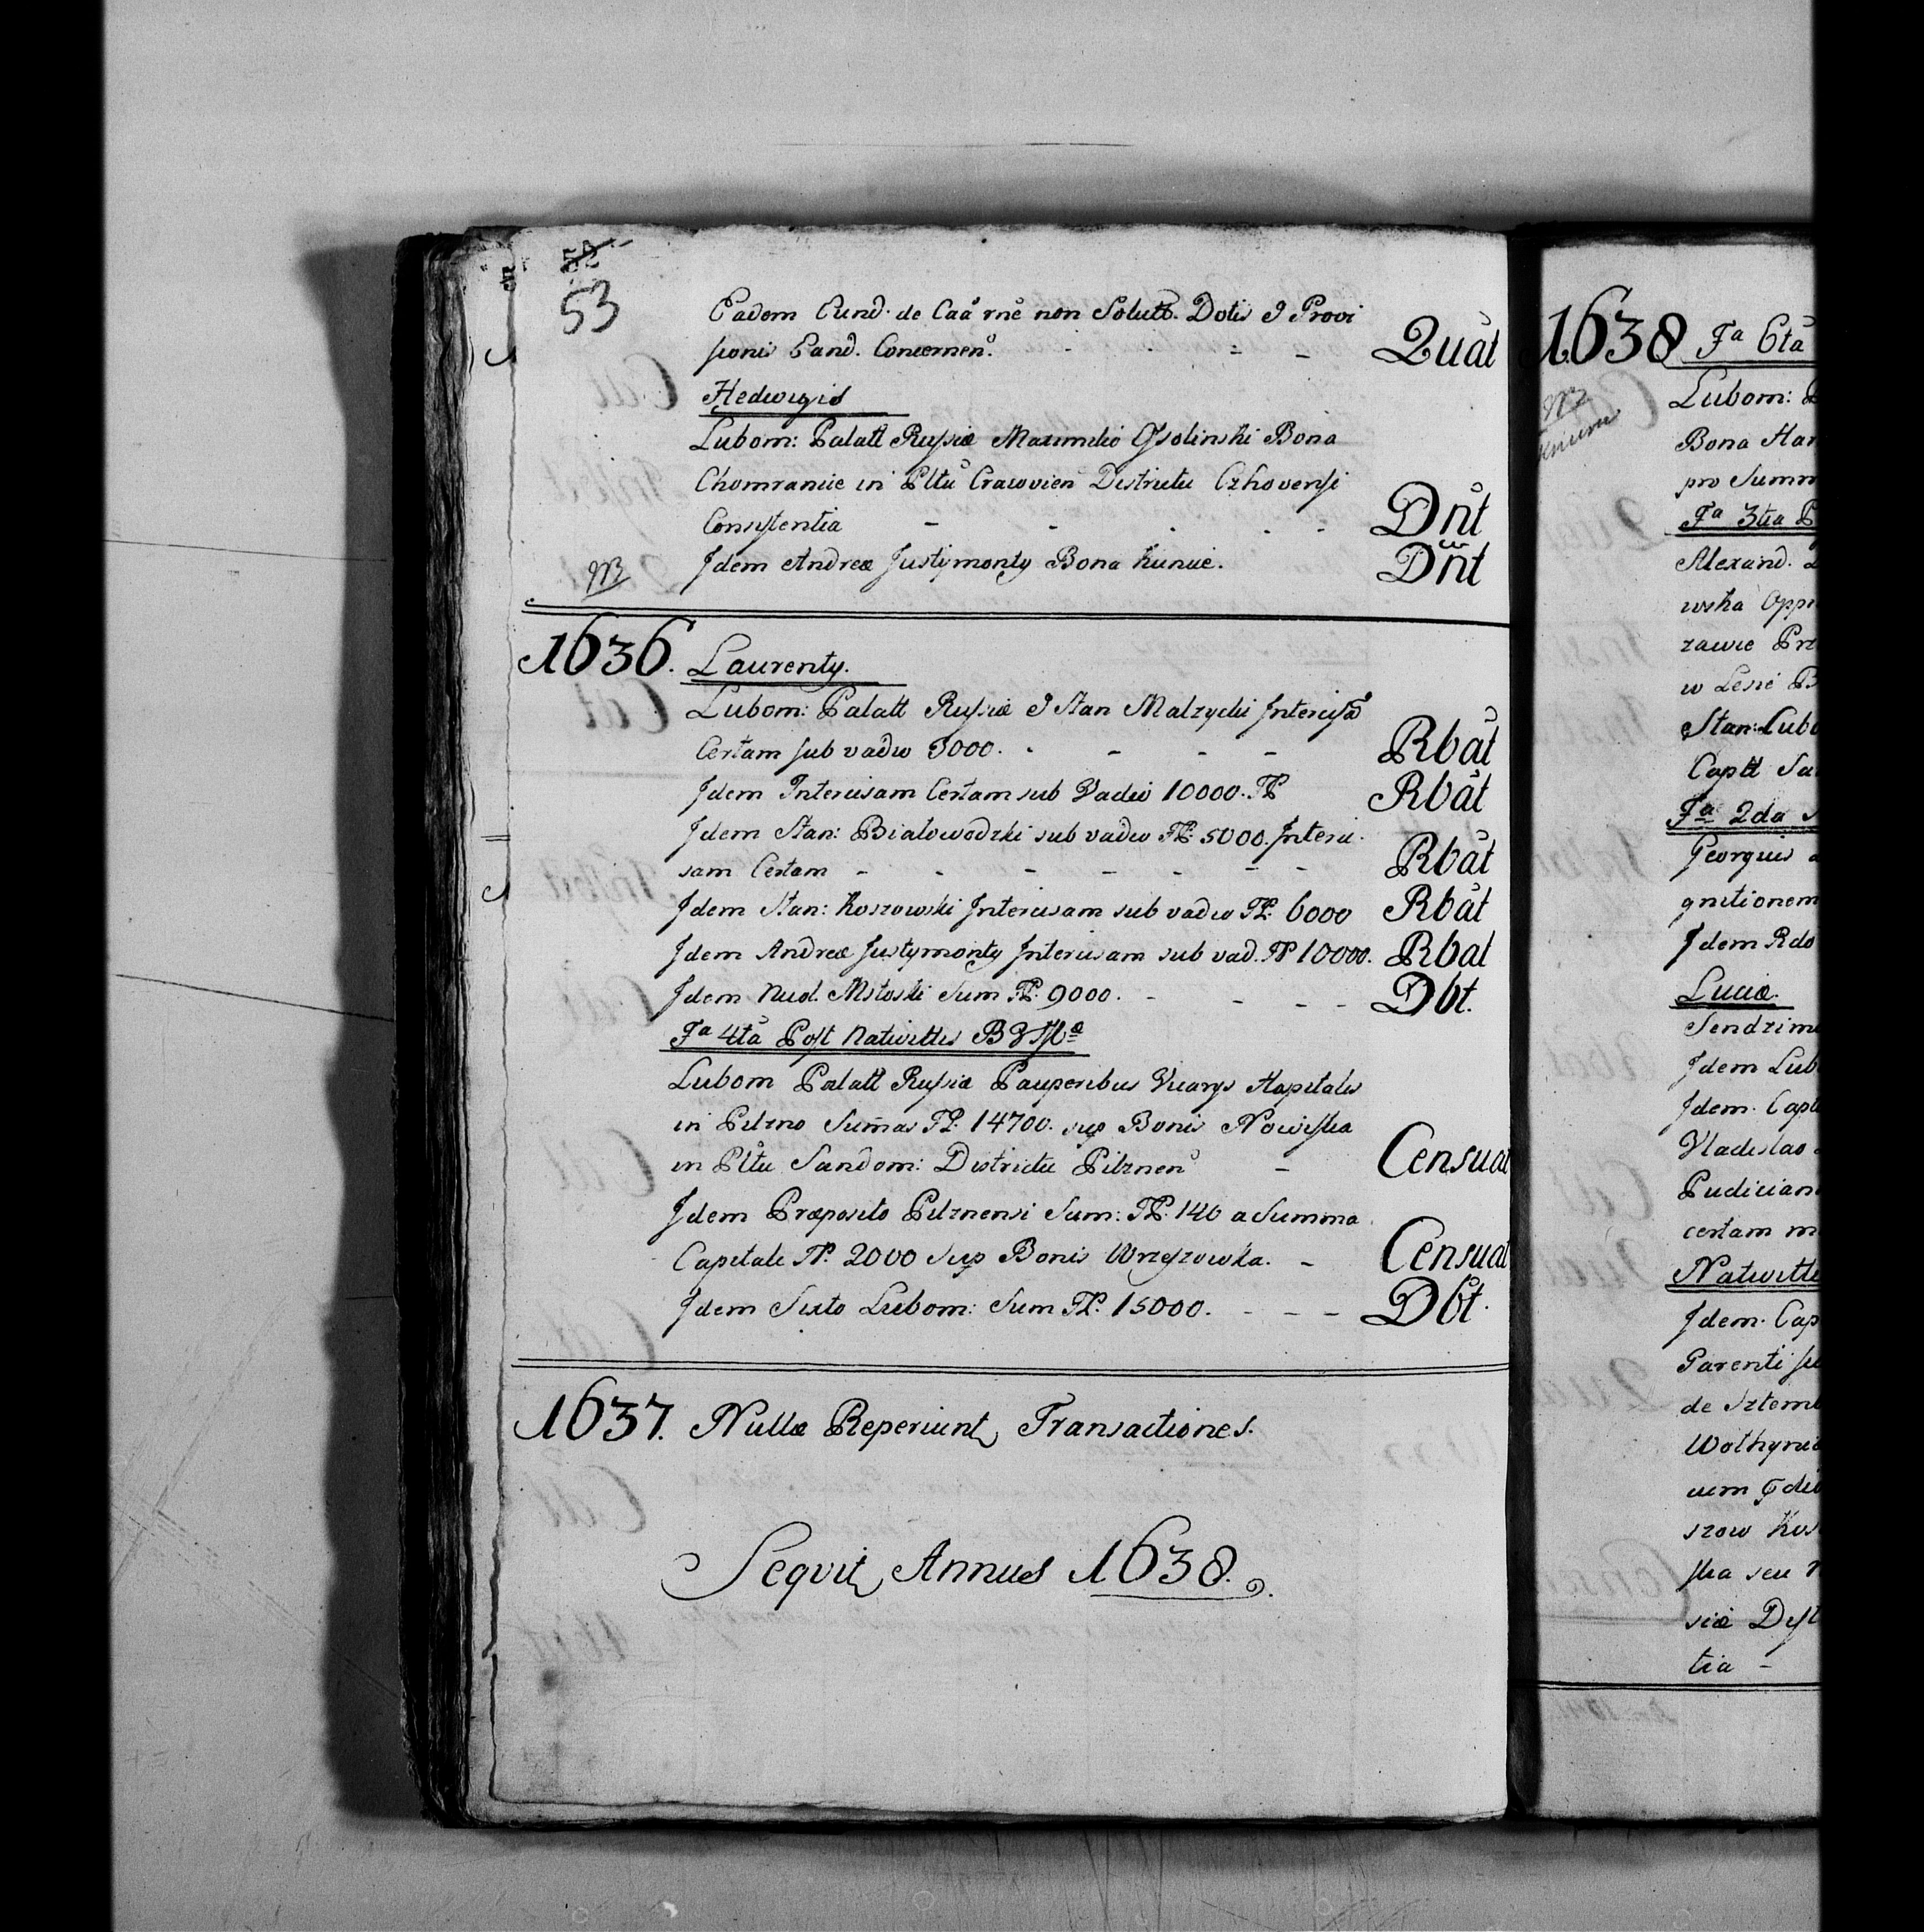 52
53
Eadem Eund. de Caa rne non Solutt. Dotis et Provi
sionis Eand. Concernen. - - - Quat
Hedwigis
Lubom: Palatt Russiæ Maximilio Ossolinski Bona
Chomranice in Pltu Cracovien Districtu Czhovensi
Consistentia - - - - Dnt
NB Idem Andreæ Justymonty Bona Kunice. Dnt
1636. Laurenty.
Lubom: Palatt Russiæ et Stan Malzycki Intercisa
Certam sub vadio 3000. - - - - Rbat
Idem Intercisam Certam sub Vadio 10000. FP Rbat
Idem Stan: Białowodzki sub vadio FP. 5000. Interci
sam Certam - - - - - - - Rbat
Idem Stan: Koszowski Intercisam sub vadio FP. 6000 Rbat
Idem Andreæ Justymonty Intercisam sub vad. FP 10000. Rbat
Idem Nicol. Mstoski Sum FP. 9000. - - - - Dbt.
Fa 4ta Post Nativittis B V Mæ
Lubom Palatt Russiæ Pauperibus Vicarys Hospitalis
in Pilzno Summas FP. 14700. sup Bonis Nowiska
in Pltu Sandom: Districtu Pilznen - Censuat
Idem Præposito Pilznensi Sum: FP. 140 a Summa
Capitale FP. 2000 Sup Bonis Wrzeszowka. - Censuat
Idem Sixto Lubom: Sum FP. 15000. - - - Dbt.
1637. Nullæ Reperiunt Transactiones.
Sequit Annus 1638.
1638 Fa 6ta
NB
Lubom:
Bona Har
pro Summ
Fa 3tia P
Alexand.
wska Opp
zawie Prz
w Lesie B
Stan: Lubo
Captt Sa
Fa 2da
Georgius
gnitionem
Idem Rdo
Luciæ.
Sendzim
Idem Lub
Idem. Capt
Vladislao
Pudician
certam m
Nativitt
Idem. Cap
Parenti su
de Sztem
Wolhynia
szow Kos
ska seu
siæ Dist
tia -